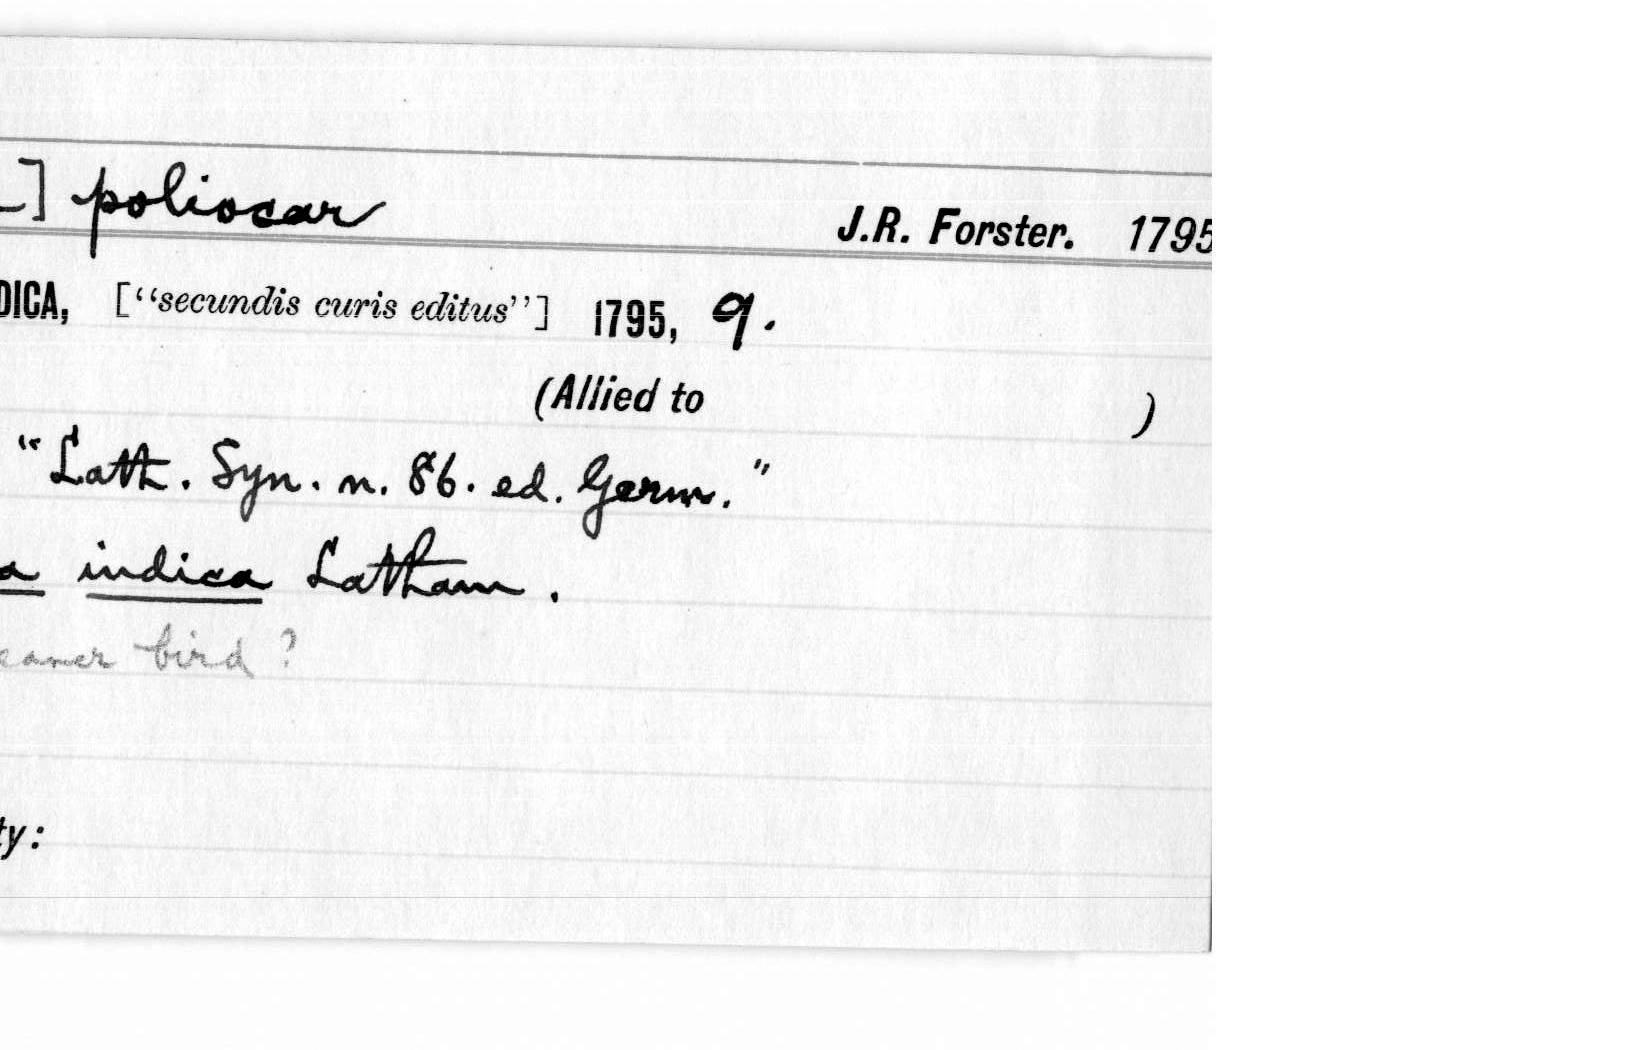 ] poliocar
J.R. Forster. 1795
DICA, ["secundis curis editus"] 1795, 9.
(Allied to )
"Lath. Syn. n. 86. ed. Germ."
a indica Latham.
eaner bird?
ty: